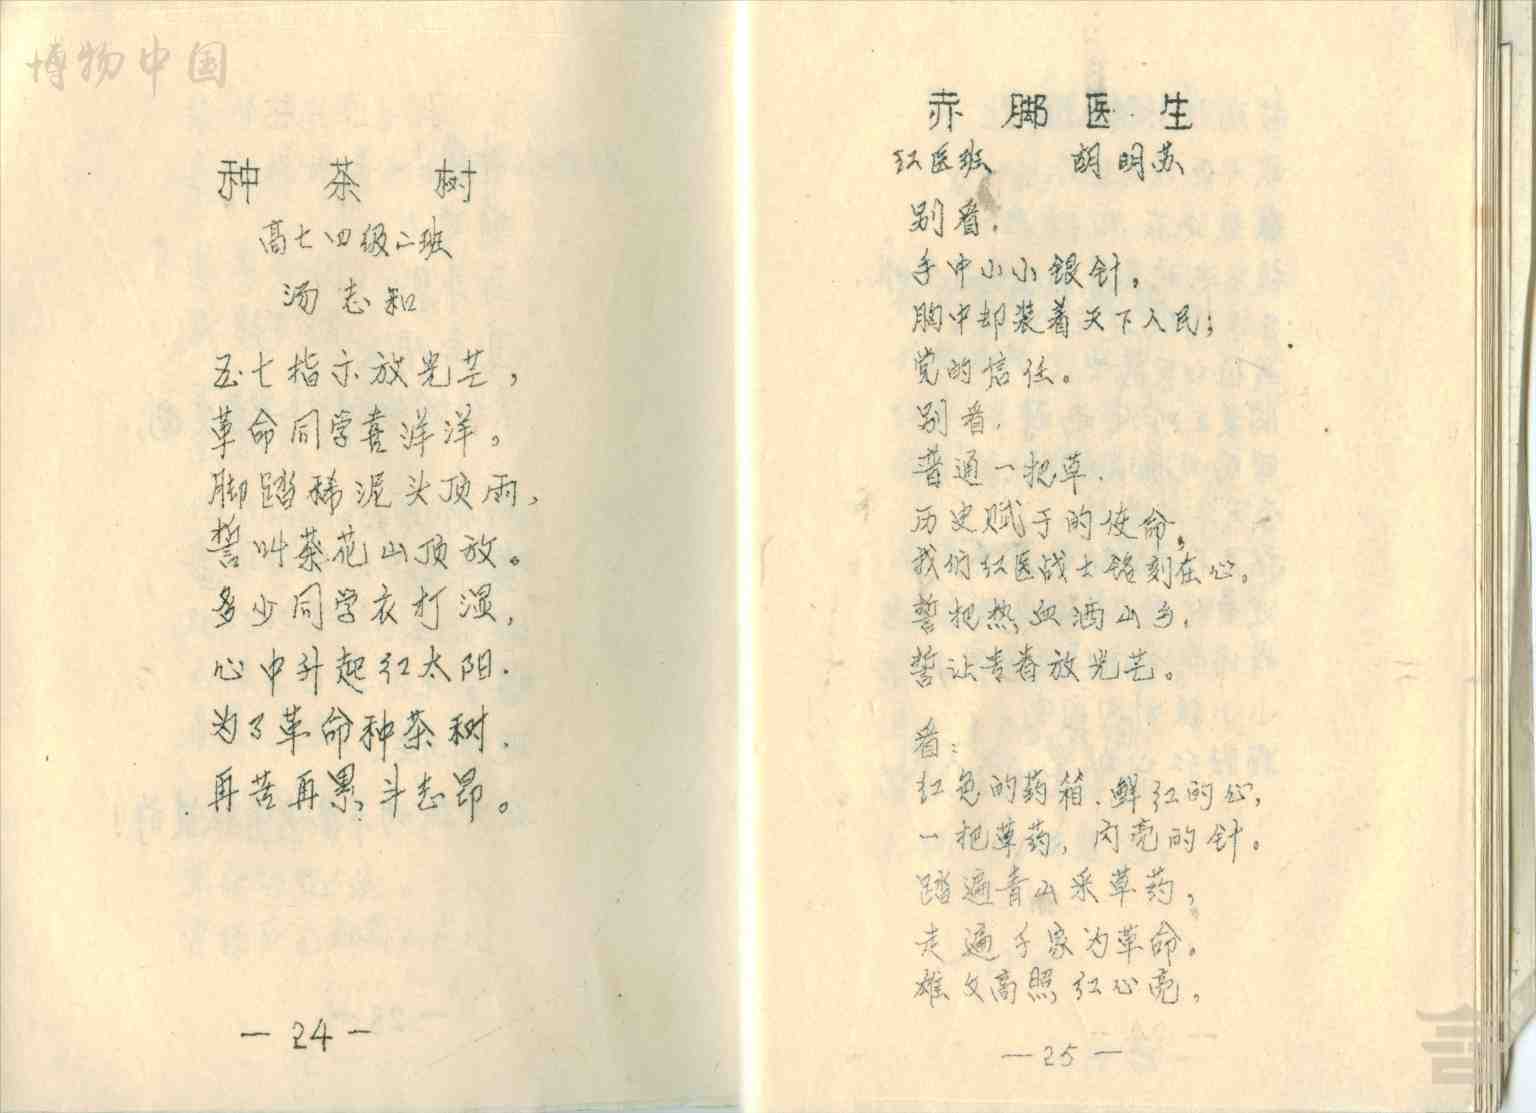 博物中国
种茶树
高七四级二班
汤志和
五·七指示放光芒，
革命同学喜洋洋。
脚踏稀泥头顶雨，
誓叫茶花山顶放。
多少同学衣打湿，
心中升起红太阳.
为了革命种茶树.
再苦再累，斗志昂。
—24—
赤脚医生
红医班 胡明苏
别看，
手中小小银针，
胸中却装着天下人民；
党的信任。
别看，
普通一把草.
历史赋于的使命，
我们红医战士铭刻在心。
誓把热血洒山乡，
誓让青春放光芒。
看：
红色的药箱.鲜红的心，
一把草药，闪亮的针。
踏遍青山采草药，
走遍千家为革命。
雄文高照红心亮，
—25—